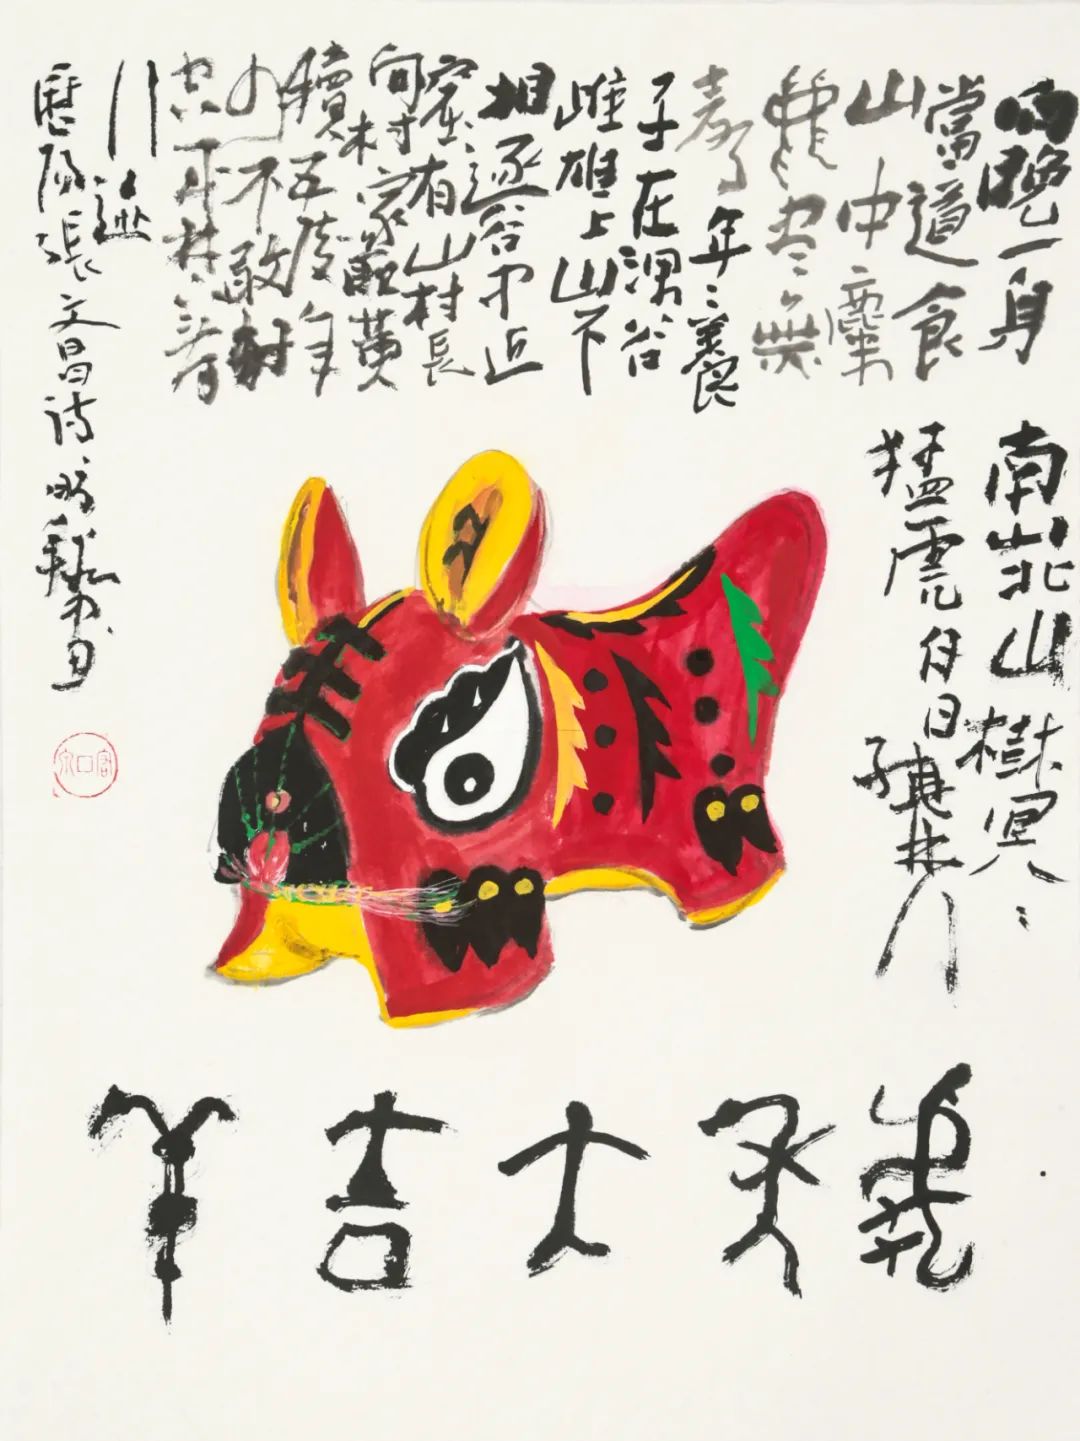 南山北山樹冥冥
猛虎白日
繞林行
向晚一身
當道食
山中麋
鹿盡無
聲年年養
子在深谷
雌雄上山不
相逐谷中近
窟有山村長
向村家取黃
犢五陵年
少不敢射
空來林下看
行迹
歷陽張文昌詩 明書
虎年大吉羊